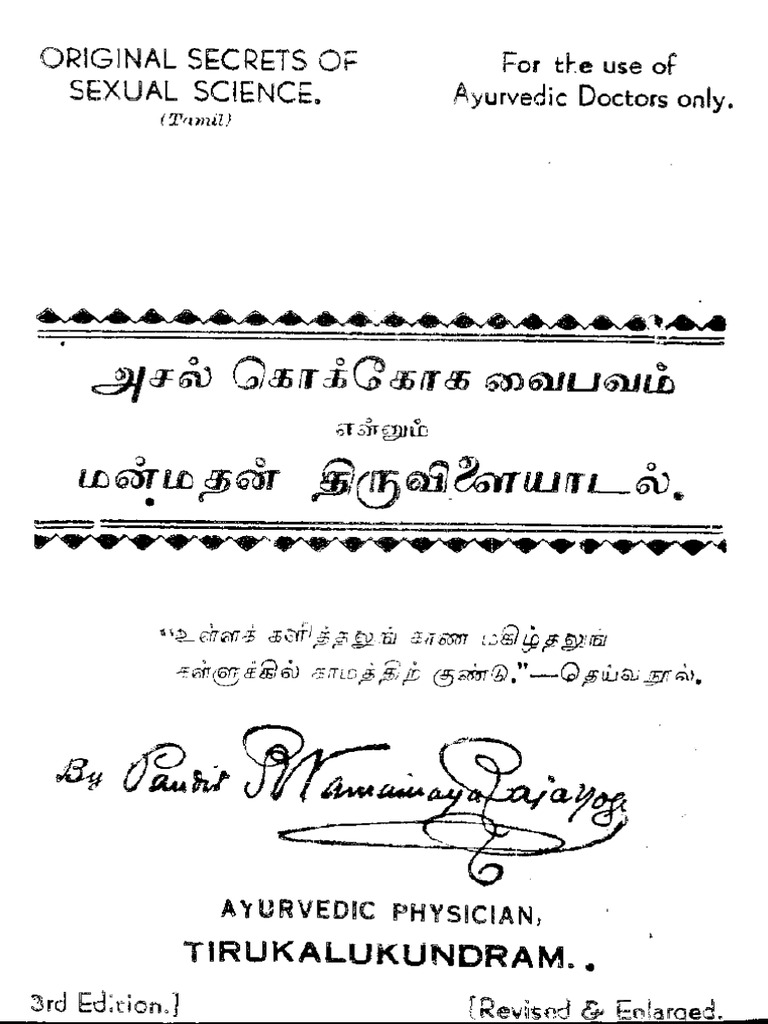 ORIGINAL SECRETS OF
SEXUAL SCIENCE.
(Tamil)
For the use of
Ayurvedic Doctors only.
அசல் கொக்கோக வைபவம்
என்னும்
மன்மதன் திருவிளையாடல்.
"உள்ளக் களித்தலுங் காண மகிழ்தலுங்
கள்ளுக்கில் காமத்திற் குண்டு."—தெய்வநூல்.
By Pandit
AYURVEDIC PHYSICIAN,
TIRUKALUKUNDRAM.
3rd Edition.]
[Revised & Enlarged.